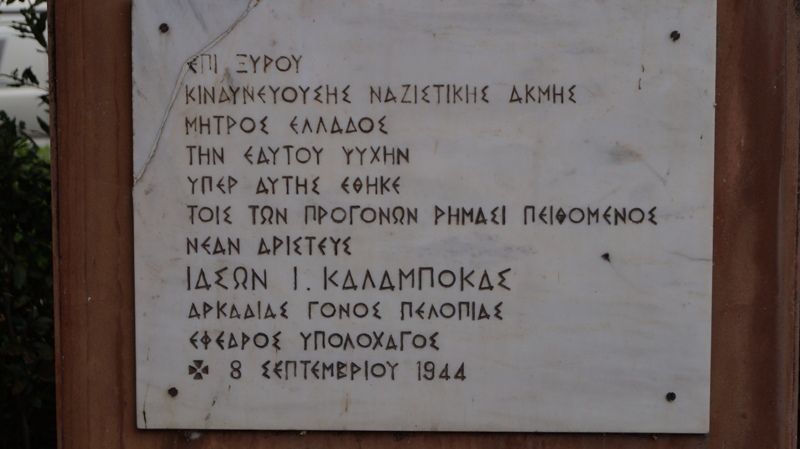 ΕΠΙ ΞΥΡΟΥ
ΚΙΝΔΥΝΕΥΟΥΣΗΣ ΝΑΖΙΣΤΙΚΗΣ ΑΚΜΗΣ
ΜΗΤΡΟΣ ΕΛΛΑΔΟΣ
ΤΗΝ ΕΑΥΤΟΥ ΨΥΧΗΝ
ΥΠΕΡ ΑΥΤΗΣ ΕΘΗΚΕ
ΤΟΙΣ ΤΩΝ ΠΡΟΓΟΝΩΝ ΡΗΜΑΣΙ ΠΕΙΘΟΜΕΝΟΣ
ΝΕΑΝ ΑΡΙΣΤΕΥΣ
ΙΑΣΩΝ Ι. ΚΑΛΑΜΠΟΚΑΣ
ΑΡΚΑΔΙΑΣ ΓΟΝΟΣ ΠΕΛΟΠΙΑΣ
ΕΦΕΔΡΟΣ ΥΠΟΛΟΧΑΓΟΣ
✠ 8 ΣΕΠΤΕΜΒΡΙΟΥ 1944